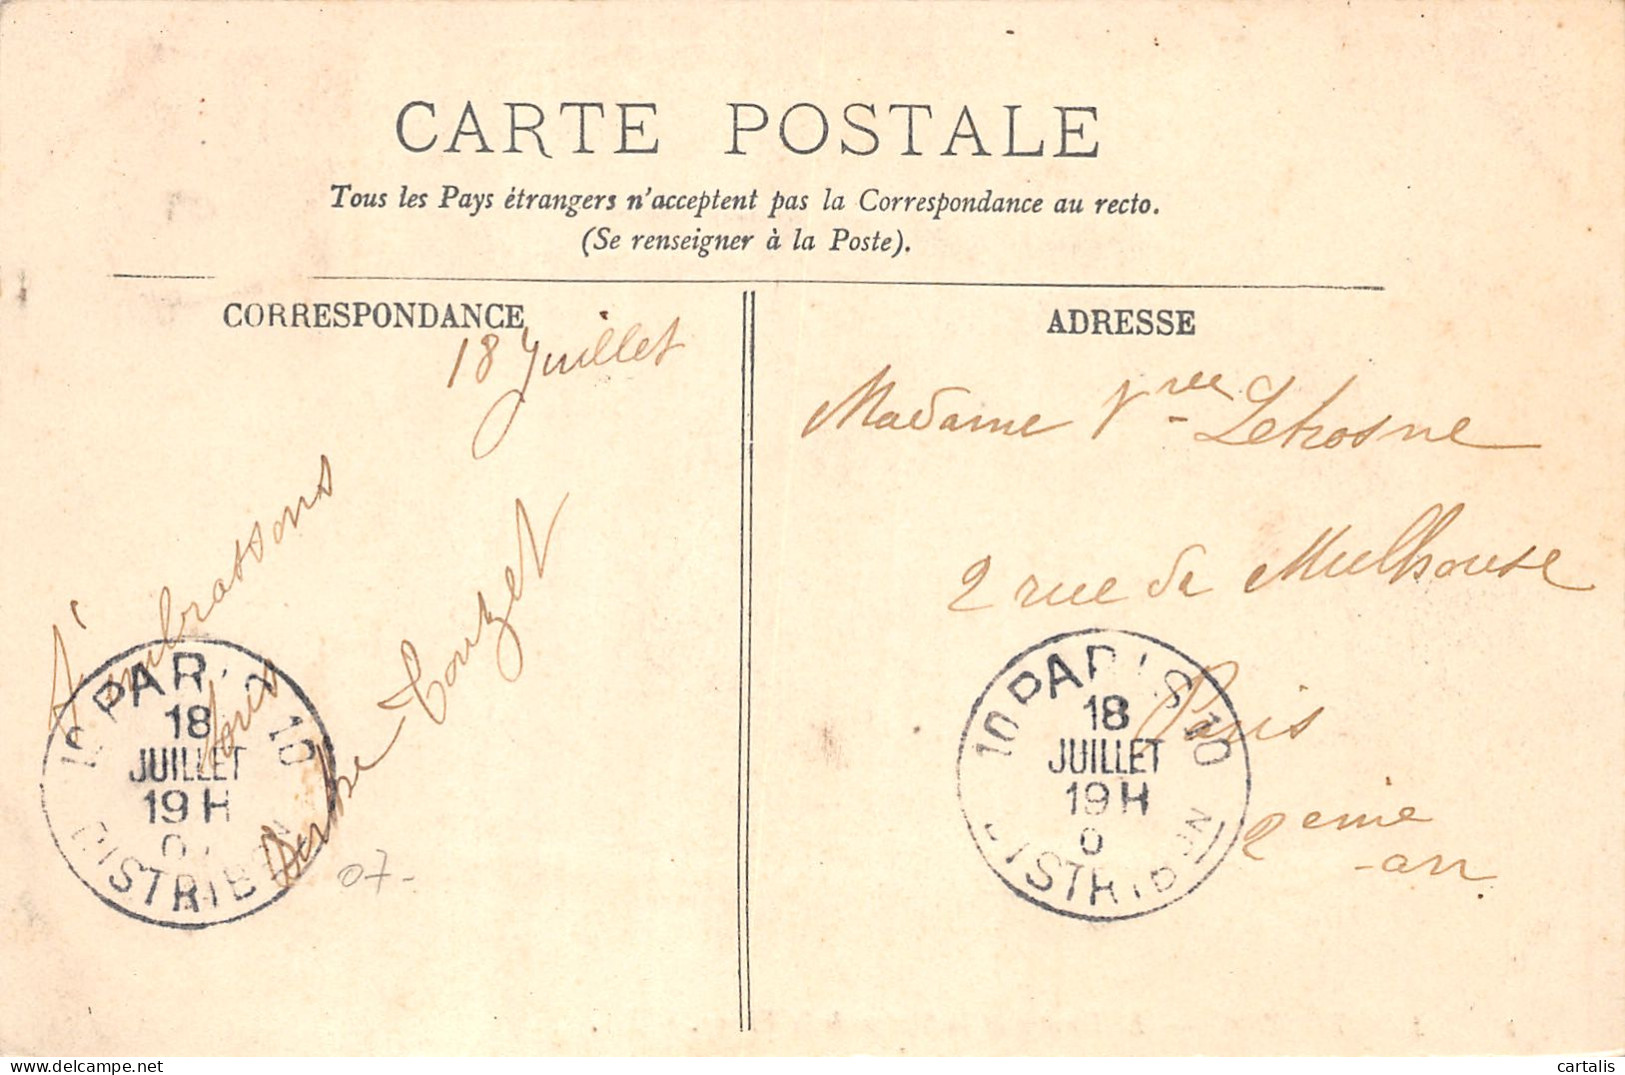 CARTE POSTALE
Tous les Pays étrangers n'acceptent pas la Correspondance au recto.
(Se renseigner à la Poste).
CORRESPONDANCE
18 Juillet
embrassons
Touzet
07-
10 PARIS 10
18
JUILLET
19 H
0
DISTRIBON
ADRESSE
Madame Vve Lehosne
2 rue de Mulhouse
Paris
2eme
arr.
10 PARIS 10
18
JUILLET
19 H
0
DISTRIBON
cartalis